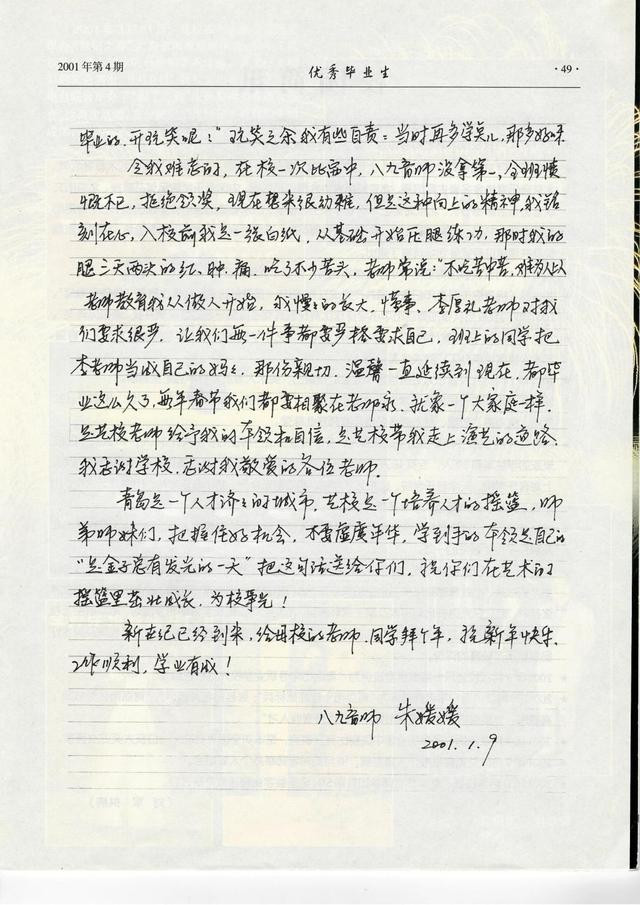 2001年第4期
优秀毕业生
·49·
毕业的.开玩笑呢；"玩笑之余我有些自责：当时再多学点儿,那多好呀
令我难忘的,在校一次比赛中,八九音师没拿第一,全班愤
慨不已,拒绝领奖,现在想来很幼稚,但是这种向上的精神,我铭
刻在心,入校前我是一张白纸,从基础开始压腿练功,那时我的
腿三天两头的红、肿、痛.吃了不少苦头,老师常说："不吃苦中苦,难为人上人
老师教育我从做人开始,我慢慢的长大、懂事、李厚礼老师对我
们要求很严.让我们每一件事都要严格要求自己,班上的同学把
李老师当成自己的妈妈.那份亲切.温馨一直延续到现在.都毕
业这么久了,每年春节我们都要相聚在老师家.就象一个大家庭一样.
是艺校老师给予我的本领和自信,是艺校带我走上演艺的道路.
我感谢学校.感谢我敬爱的各位老师.
青岛是一个人才济济的城市.艺校是一个培养人才的摇篮,师
弟师妹们,把握住好机会,不要虚度年华,学到手的本领是自己的
"是金子总有发光的一天"把这句话送给你们,祝你们在艺术的
摇篮里茁壮成长,为校争光!
新世纪已经到来,给母校的老师.同学拜个年,祝新年快乐、
工作顺利,学业有成!
八九音师 朱媛媛
2001.1.9